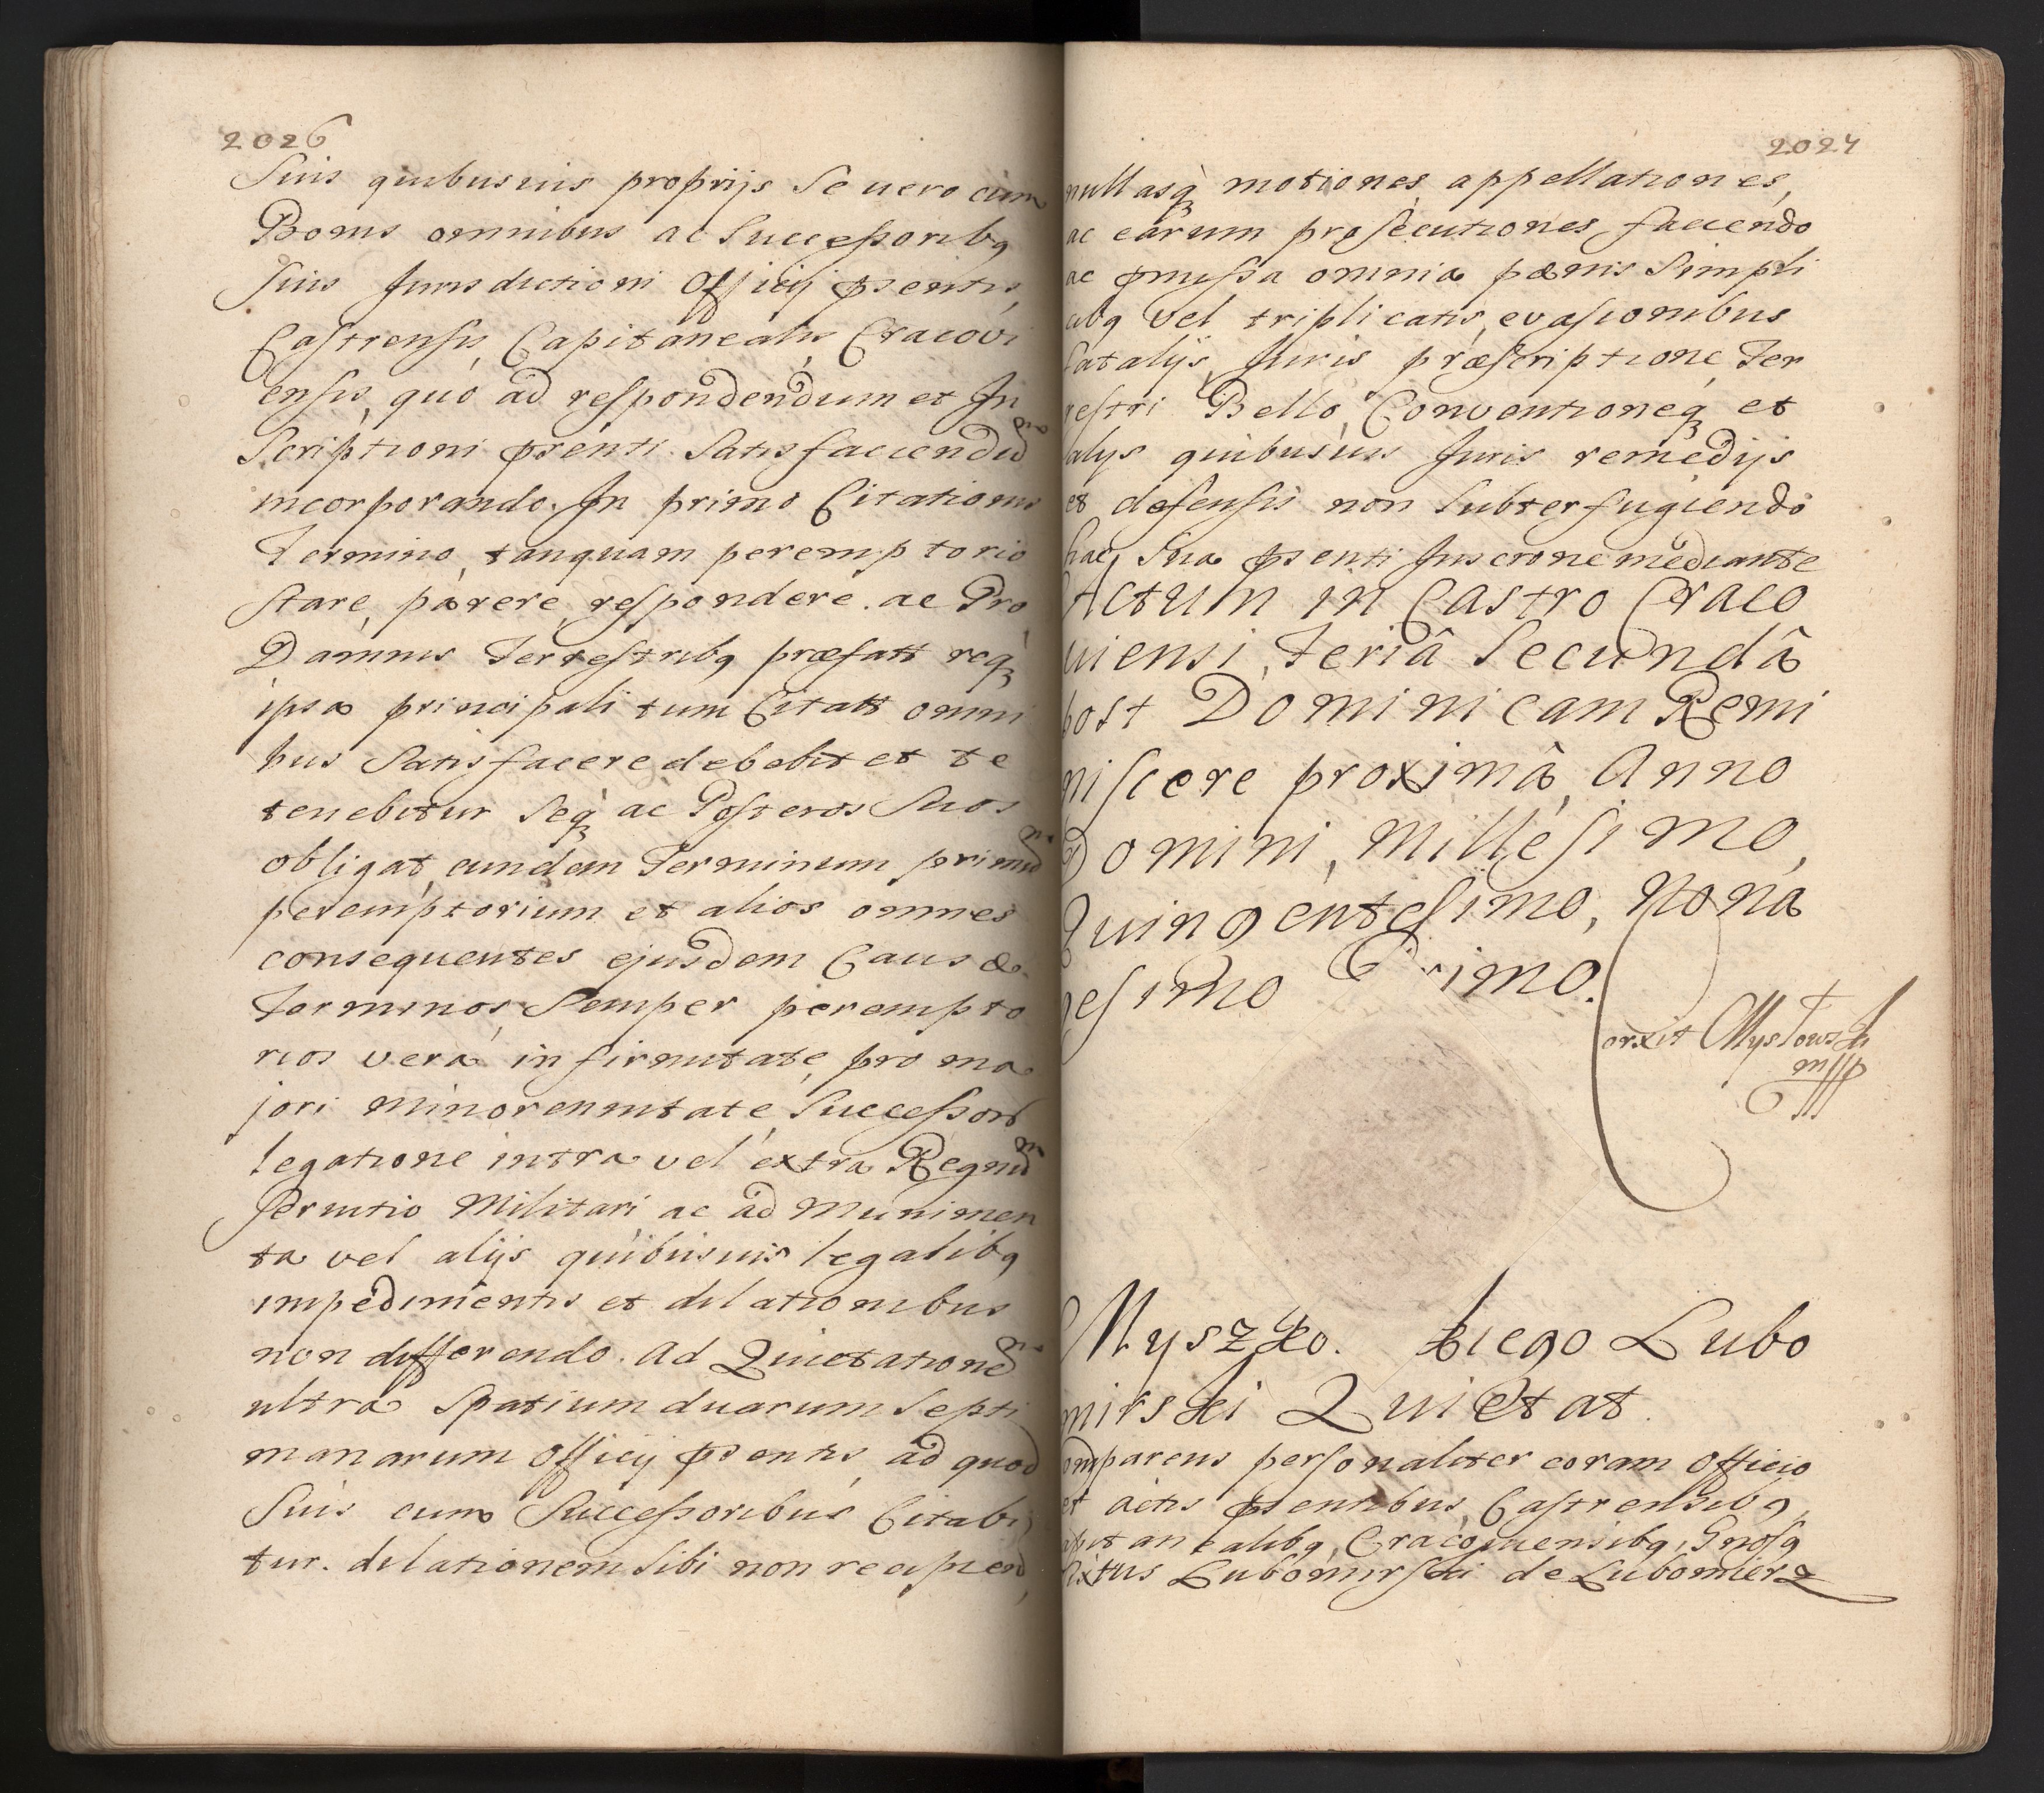 2026
Suis quibusuis proprijs Se uero cum
Bonis omnibus ac Successoribq
Suis Jurisdictioni Officij psentis,
Castrensis, Capitanealis, Cracovi
ensis, quo ad respondendum et In
Scriptioni psenti Satisfaciendū
incorporando. In primo Citationis
Termino, tanquam peremptorio
Stare, parere, respondere. ac Pro
Damnis Terrestribq præfatt req
ipsa principali tum Citatt omni
bus Satisfacere debebit et te
tenebitur Seq ac Posteros Suos
obligat, eundem Terminum primū
peremptorium et alios omnes
consequentes ejusdem Causæ
Terminos, Semper perempto
rios vera infirmitate, pro ma
jori minorennitate, Successorū
legatione intra vel extra Regnū
Seruitio Militari, ac ad Munimen
ta vel alijs quibusuis legalibq
impedimentis et dilationibus
non differendo. Ad Quietationē
ultra Spatium duarum Septi
manarum Officij psentis, ad quod
Suis cum Successoribus Citabi
tur. dilationem Sibi non recipiend
2027
nullasq motiones, appellationes,
ac earum prosecutiones faciendo
ac pmissa omnia pœnis Simpli
cibq vel triplicatis, evasionibus
fatalijs, Juris præscriptione, Ter
restri Bello, Conventioneq et
alys quibusuis Juris remedijs
et defensis non Subterfugiendo
hac Sua psenti Inscrone mediante
Actum in Castro Craco
uiensi, Feriâ Secundâ
post Dominicam Remi
niscere proximâ, Anno
Domini, Millesimo,
Quingentesimo, Nona
gesimo Primo.
orxit Mystowski
mppp
Myszko. kiego Lubo
mirski Quietat.
omparens personaliter coram Officio
et actis psentibus, Castrensibq,
apitanealibq, Cracouiensibq, Gnosq
Lubomirski de Lubomierz